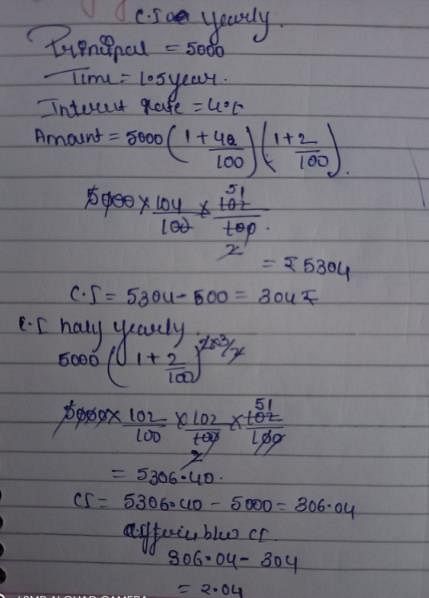 C.S yearly.
Principal = 5000
Time = 1.5 year.
Interest Rate = 4%
Amount = 5000 (1 + 4/100) (1 + 2/100).
5000 × 104/100 × 102/100. 51 2
= ₹ 5304
C.S = 5304 - 500 = 304 ₹
C.S half yearly.
5000 (1 + 2/100)^2×3/2
5000 × 102/100 × 102/100 × 102/100 51 2
= 5306.40.
CS = 5306.40 - 5000 = 306.04
CS
306.04 - 304
= 2.04